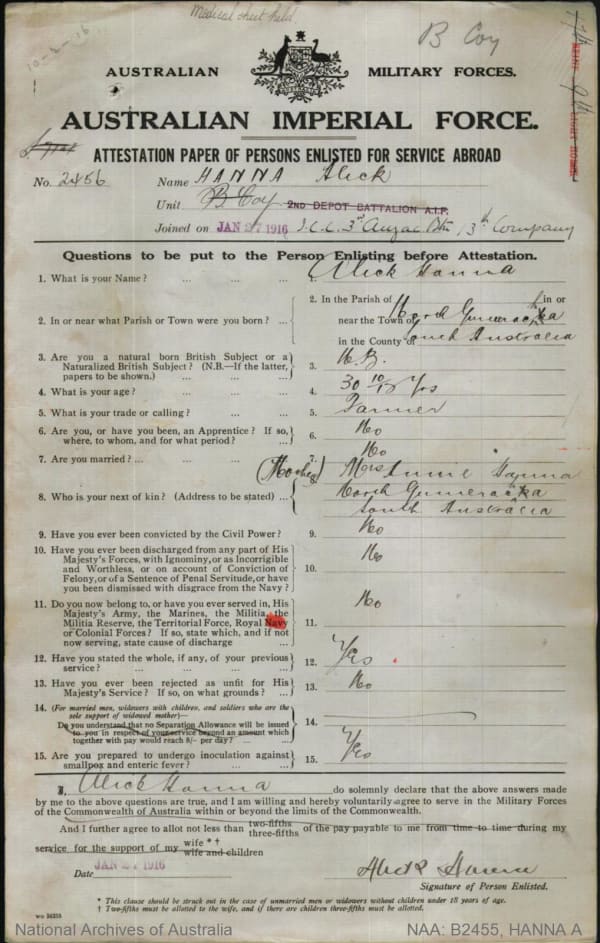 Medical sheet held
10-2-16
B Coy
AUSTRALIAN MILITARY FORCES.
AUSTRALIAN IMPERIAL FORCE.
ATTESTATION PAPER OF PERSONS ENLISTED FOR SERVICE ABROAD
No. 2456 Name HANNA Alick
Unit B Coy 2ND DEPOT BATTALION A.I.F.
Joined on JAN 27 1916 I.C.C. 3rd Anzac Btn 13th Company
Questions to be put to the Person Enlisting before Attestation.
1. What is your Name? ... ... ... 1. Alick Hanna
2. In or near what Parish or Town were you born? ... 2. In the Parish of North Gumeracha in or
near the Town of
in the County of South Australia
3. Are you a natural born British Subject or a
Naturalized British Subject? (N.B.—If the latter,
papers to be shown.) ... ... 3. N.B.
4. What is your age? ... ... ... 4. 30 10/12 Yrs
5. What is your trade or calling? ... ... 5. Farmer
6. Are you, or have you been, an Apprentice? If so,
where, to whom, and for what period? ... 6. No
7. Are you married? ... ... ... 7. No
8. Who is your next of kin? (Address to be stated) ... 8. (Mother) Mrs Annie Hanna
North Gumeracha
South Australia
9. Have you ever been convicted by the Civil Power? 9. No
10. Have you ever been discharged from any part of His
Majesty's Forces, with Ignominy, or as Incorrigible
and Worthless, or on account of Conviction of
Felony, or of a Sentence of Penal Servitude, or have
you been dismissed with disgrace from the Navy? 10. No
11. Do you now belong to, or have you ever served in, His
Majesty's Army, the Marines, the Militia, the
Militia Reserve, the Territorial Force, Royal Navy
or Colonial Forces? If so, state which, and if not
now serving, state cause of discharge ... 11. No
12. Have you stated the whole, if any, of your previous
service? ... ... ... ... 12. Yes
13. Have you ever been rejected as unfit for His
Majesty's Service? If so, on what grounds? ... 13. No
14. (For married men, widowers with children, and soldiers who are the
sole support of widowed mother)—
Do you understand that no Separation Allowance will be issued
to you in respect of your service beyond an amount which
together with pay would reach 8/- per day? ... ... 14.
15. Are you prepared to undergo inoculation against
smallpox and enteric fever? ... ... 15. Yes
I, Alick Hanna do solemnly declare that the above answers made
by me to the above questions are true, and I am willing and hereby voluntarily agree to serve in the Military Forces
of the Commonwealth of Australia within or beyond the limits of the Commonwealth.
And I further agree to allot not less than two-fifths three-fifths of the pay payable to me from time to time during my
service for the support of my wife * † wife and children
Date JAN 27 1916 Alick Hanna
Signature of Person Enlisted.
* This clause should be struck out in the case of unmarried men or widowers without children under 18 years of age.
† Two-fifths must be allotted to the wife, and if there are children three-fifths must be allotted.
National Archives of Australia NAA: B2455, HANNA A